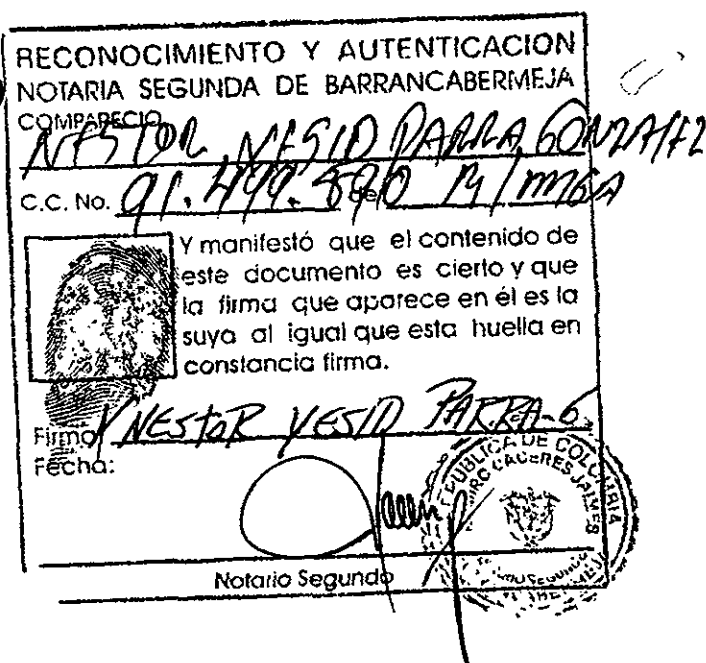 RECONOCIMIENTO Y AUTENTICACION
NOTARIA SEGUNDA DE BARRANCABERMEJA
COMPARECIO
NESTOR YESID PARRA GONZALEZ
C.C. No. 91.499.890 de B/MGA
Y manifestó que el contenido de
este documento es cierto y que
la firma que aparece en él es la
suya al igual que esta huella en
constancia firma.
Firma NESTOR YESID PARRA-G.
Fecha:
REPUBLICA DE COLOMBIA
CACERES JAIMES
Notario Segundo